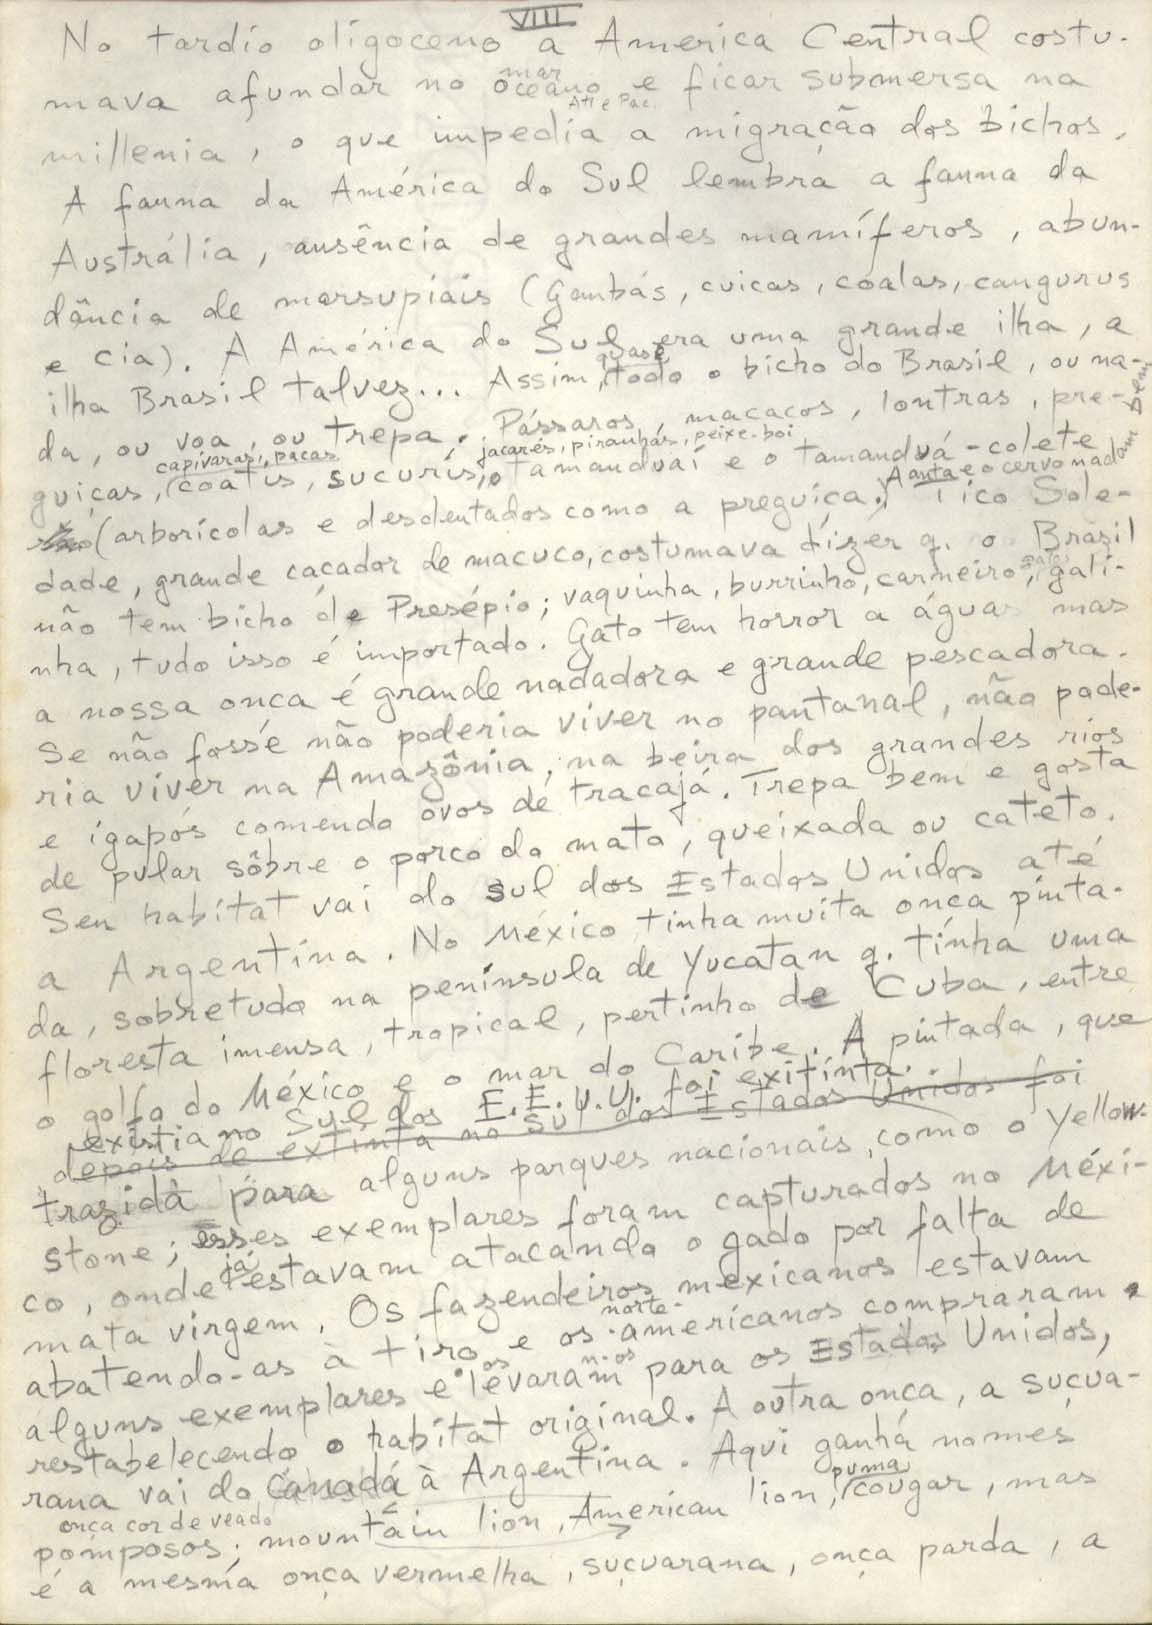 VIII
No tardio oligoceno a America Central costu-
mar
mava afundar no oceano e ficar submersa na
Atl e Pac.
millenia, o que impedia a migração dos bichos.
A fauna da América do Sul lembra a fauna da
Austrália, ausência de grandes mamíferos, abun-
dância de marsupiais (Gambás, cuicas, coalas, cangurus
e cia). A América do Sul era uma grande ilha, a
quase
ilha Brasil talvez... Assim, todo o bicho do Brasil, ou na-
da, ou voa, ou trepa. Pássaros, macacos, lontras, pre-
capivaras, pacas jacarés, piranhas, peixe-boi
guiças, coatis, sucuris, o tamanduaí e o tamanduá-colete
A anta e o cervo nadam bem
(arborícolas e desdentados como a preguiça.) Tico Sole-
dade, grande caçador de macuco, costumava dizer q. o Brasil
não tem bicho de Presépio; vaquinha, burrinho, carneiro, gali-
nha, tudo isso é importado. Gato tem horror a água mas
a nossa onca é grande nadadora e grande pescadora.
Se não fosse não poderia viver no pantanal, não pode-
ria viver na Amazônia, na beira dos grandes rios
e igapós comendo ovos de tracajá. Trepa bem e gosta
de pular sôbre o porco do mato, queixada ou cateto.
Seu habitat vai do sul dos Estados Unidos até
a Argentina. No México tinha muita onça pinta-
da, sobretudo na península de Yucatan q. tinha uma
floresta imensa, tropical, pertinho de Cuba, entre
o golfo do México e o mar do Caribe. A pintada, que
existia no Sul dos E.E.U.U. foi exitinta.
depois de extinta no sul dos Estados Unidos foi
trazida para alguns parques nacionais, como o Yellow-
stone; esses exemplares foram capturados no Méxi-
já
co, onde estavam atacando o gado por falta de
mata virgem. Os fazendeiros mexicanos estavam
norte-
abatendo-as à tiro e os americanos compraram
os n-os
alguns exemplares e levaram para os Estados Unidos,
restabelecendo o habitat original. A outra onça, a suçua-
rana vai do Canadá à Argentina. Aqui ganha nomes
onça cor de veado puma
pomposos; mountain lion, American lion, cougar, mas
é a mesma onça vermelha, suçuarana, onça parda, a